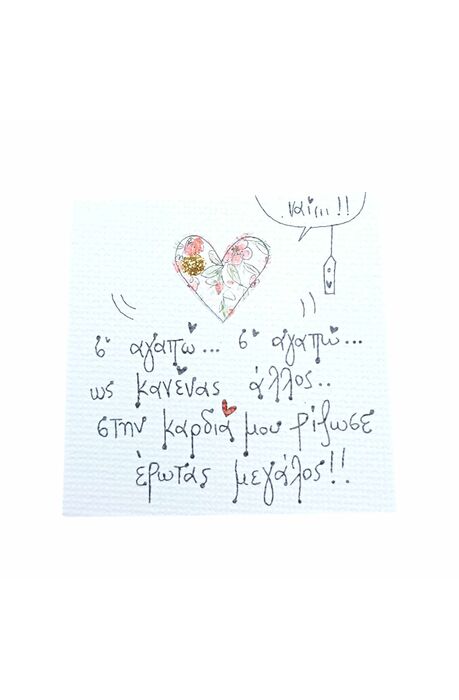 ναί,,, !!
σ' αγαπώ... σ' αγαπώ...
ως κανένας άλλος..
στην καρδιά μου ρίζωσε
έρωτας μεγάλος!!